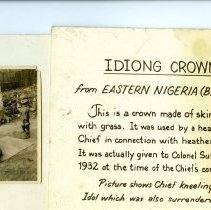 IDIONG CROWN
from EASTERN NIGERIA (B
This is a crown made of skin
with grass. It was used by a hea
Chief in connection with heathen
It was actually given to Colonel Su
1932 at the time of the Chief's con
Picture shows Chief kneeling
Idol which was also surrendere